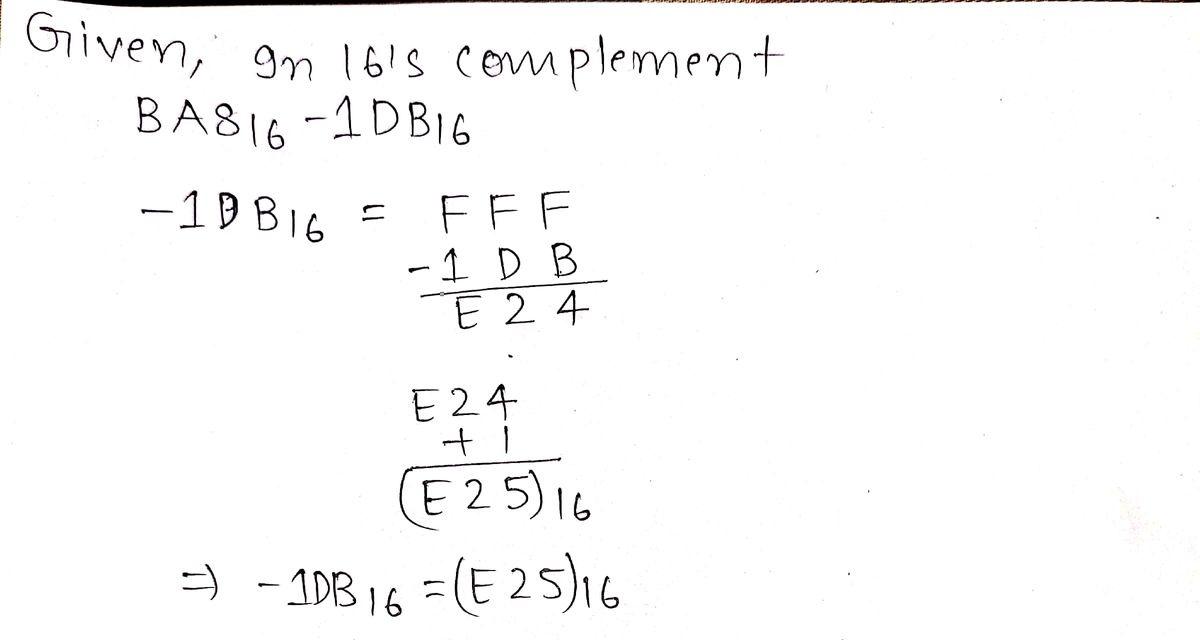 Given, In 16's complement
BA816 -1DB16
-1DB16 = FFF
-1DB
E24
E24
+1
(E25)16
⇒ -1DB16 = (E25)16